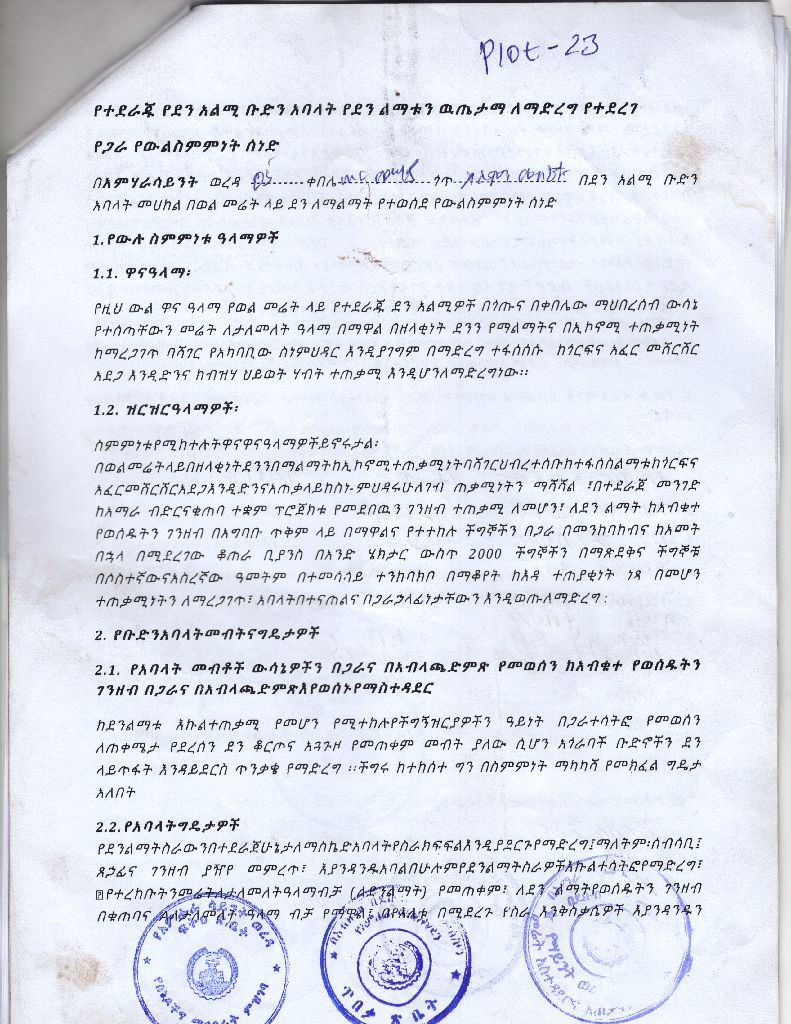 Plot - 23
የተደራጁ የደን አልሚ ቡድን አባላት የደን ልማቱን ዉጤታማ ለማድረግ የተደረገ
የጋራ የውልስምምነት ሰነድ
በአምሃራሳይንት ወረዳ ...... ቀበሌ ...... ጎጥ ...... በደን አልሚ ቡድን
አባላት መሀከል በወል መሬት ላይ ደን ለማልማት የተወሰደ የውልስምምነት ሰነድ
1.የውሉ ስምምነቱ ዓላማዎች
1.1. ዋናዓላማ፡
የዚህ ውል ዋና ዓላማ የወል መሬት ላይ የተደራጁ ደን አልሚዎች በጎጡና በቀበሌው ማህበረሰብ ውሳኔ
የተሰጣቸውን መሬት ለታለመለት ዓላማ በማዋል በዘላቂነት ደንን የማልማትና በኢኮኖሚ ተጠቃሚነት
ከማረጋገጥ ባሻገር የአካባቢው ስነምህዳር እንዲያገግም በማድረግ ተፋሰሰሱ ከጎርፍና አፈር መሸርሸር
አደጋ እንዲድንና ከብዝሃ ህይወት ሃብት ተጠቃሚ እንዲሆንለማድረግነው።
1.2. ዝርዝርዓላማዎች፡
ስምምነቱየሚከተሉትዋናዋናዓላማዎችይኖሩታል፡
በወልመሬትላይበዘላቂነትደንንበማልማትከኢኮኖሚተጠቃሚነትባሻገርህብረተሰቡከተፋሰስልማቱከጎርፍና
አፈርመሸርሸርአደጋእንዲድንናአጠቃላይከስነ-ምህዳሩሁለገብ ጠቃሚነትን ማሻሻል ፣በተደራጀ መንገድ
ከአማራ ብድርናቁጠባ ተቋም ፕሮጀክቱ የመደበዉን ገንዘብ ተጠቃሚ ለመሆን፣ ለደን ልማት ከአብቁተ
የወሰዱትን ገንዘብ በአግባቡ ጥቅም ላይ በማዋልና የተተከሉ ችግኞችን በጋራ በመንከባከብና ከአመት
በኋላ በሚደረገው ቆጠራ ቢያንስ በአንድ ሄክታር ውስጥ 2000 ችግኞችን በማጽደቅና ችግኞቹ
በሶስተኛውናአስረኛው ዓመትም በተመሳሳይ ተንከባክቦ በማቆየት ከእዳ ተጠያቂነት ነጻ በመሆን
ተጠቃሚነትን ለማረጋገጥ፣ አባላትበተናጠልና በጋራኃላፊነታቸውን እንዲወጡለማድረግ፡
2. የቡድንአባላትመብትናግዴታዎች
2.1. የአባላት መብቶች ውሳኔዎችን በጋራና በአብላጫድምጽ የመወሰን ከአብቁተ የወሰዱትን
ገንዘብ በጋራና በአብላጫድምጽእየወሰኑየማስተዳደር
ከደንልማቱ እኩልተጠቃሚ የመሆን የሚተከሉየችግኝዝርያዎችን ዓይነት በጋራተሳትፎ የመወሰን
ለጠቀሜታ የደረሰን ደን ቆርጦና አጓጉዞ የመጠቀም መብት ያለው ሲሆን አጎራባች ቡድኖችን ደን
ላይጥፋት እንዳይደርስ ጥንቃቄ የማድረግ ፡፡ችግሩ ከተከሰተ ግን በስምምነት ማካካሻ የመክፈል ግዴታ
አለበት
2.2.የአባላትግዴታዎች
የደንልማትስራውንበተደራጀሁኔታለማስኬድአባላትየስራክፍፍልእንዲያደርጉየማድረግ፤ማለትም፡ሰብሳቢ፤
ጸኃፊና ገንዘብ ያዥየ መምረጥ፣ እያንዳንዱአባልበሁሉምየደንልማትስራዎችእኩልተሳትፎየማድረግ፣
የተረከቡትንመሬትለታለመለትዓላማብቻ (ለደንልማት) የመጠቀም፣ ለደን ልማትየወሰዱትን ገንዘብ
በቁጠባና ለታለመለት ዓላማ ብቻ የማዋል፤ በየእለቱ በሚደረጉ የስራ እንቅስቃሴዎች እያንዳንዱን